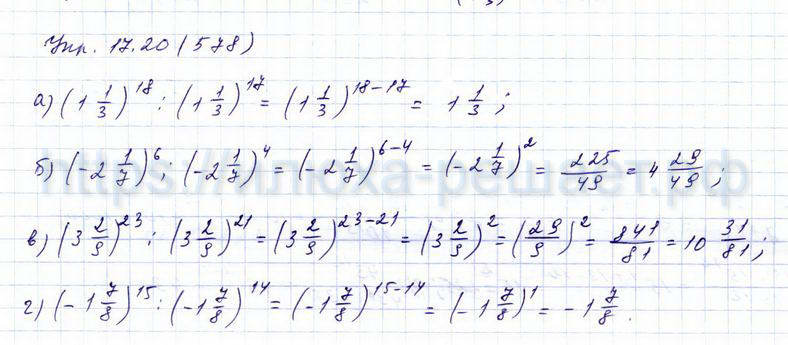 Упр. 17.20 (578)
а) (1 1/3)^18 : (1 1/3)^17 = (1 1/3)^18-17 = 1 1/3 ;
б) (-2 1/7)^6 : (-2 1/7)^4 = (-2 1/7)^6-4 = (-2 1/7)^2 = 225/49 = 4 29/49 ;
в) (3 2/9)^23 : (3 2/9)^21 = (3 2/9)^23-21 = (3 2/9)^2 = (29/9)^2 = 841/81 = 10 31/81 ;
г) (-1 7/8)^15 : (-1 7/8)^14 = (-1 7/8)^15-14 = (-1 7/8)^1 = -1 7/8 .